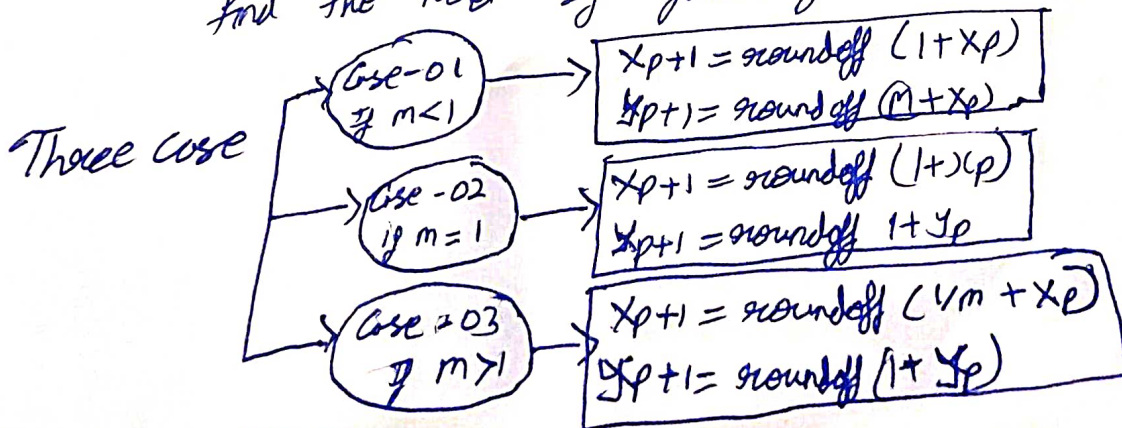 find the
Three Case
Case-01
if m<1
Xp+1 = roundoff (1+Xp)
Yp+1 = roundoff (m+Xp)
Case-02
if m=1
Xp+1 = roundoff (1+xp)
Yp+1 = roundoff 1+Yp
Case-03
if m>1
Xp+1 = roundoff (1/m + Xp)
Yp+1 = roundoff (1+Yp)